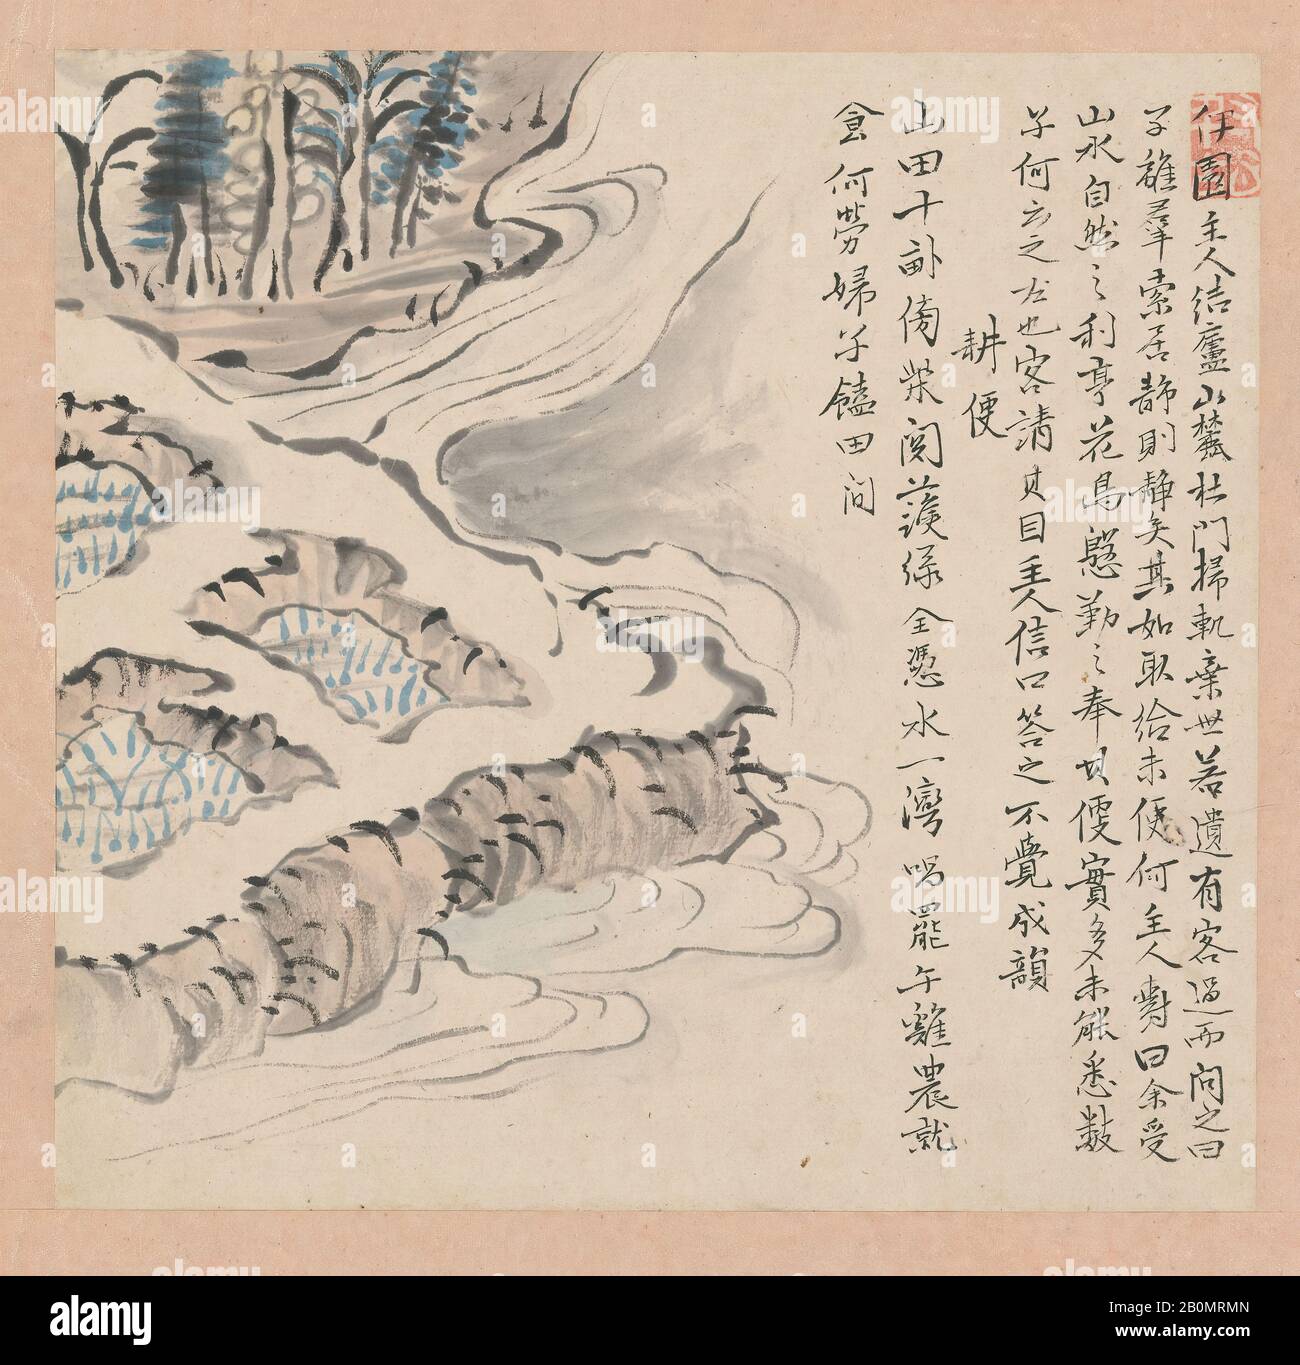 伊園主人結廬山麓杜門掃軌棄世若遺有客過而問之曰
子離羣索居靜則靜矣其如取給未便何主人對曰余受
山水自然之利享花鳥慇勤之奉其便實多未能悉數
子何云之左也客請其目主人信口答之不覺成韻
耕便
山田十畝傍柴関護綠全憑水一灣唱罷午雞農就
食何勞婦子饁田間
alamy
Image ID: 2B0MRMN
www.alamy.com